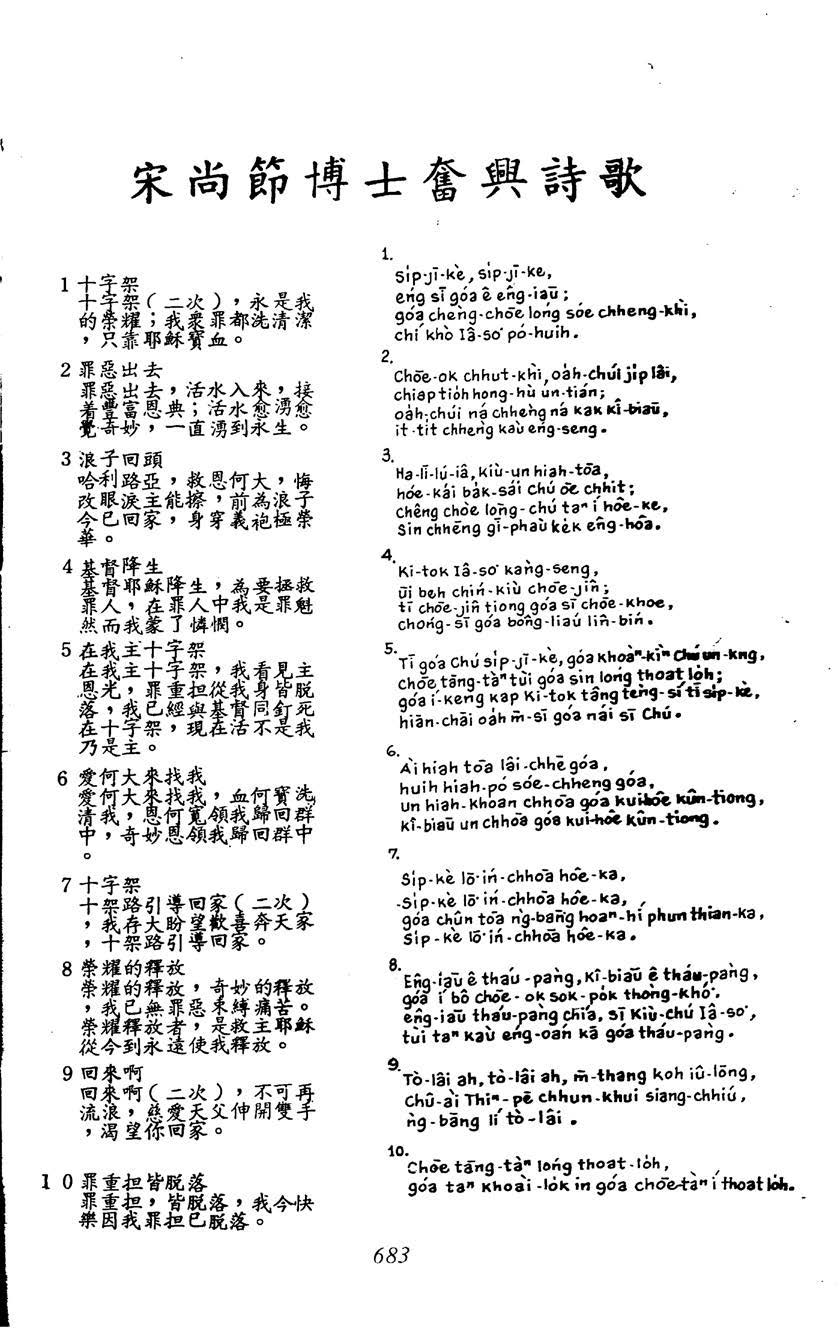 宋尚節博士奮興詩歌
1十字架
十字架（二次），永是我
的榮耀；我衆罪都洗清潔
，只靠耶穌寶血。
2罪惡出去
罪惡出去，活水入來，接
着豐富恩典；活水愈湧愈
覺奇妙，一直湧到永生。
3浪子回頭
哈利路亞，救恩何大，悔
改眼淚主能擦，前為浪子
今已回家，身穿義袍極榮
華。
4基督降生
基督耶穌降生，為要拯救
罪人，在罪人中我是罪魁
然而我蒙了憐憫。
5在我主十字架
在我主十字架，我看見主
恩光，罪重担從我身皆脫
落，我已經與基督同釘死
在十字架，現在活不是我
乃是主。
6愛何大來找我
愛何大來找我，血何寶洗
清我，恩何寬領我歸回群
中，奇妙恩領我歸回群中
。
7十字架
十架路引導回家（二次）
，我存大盼望歡喜奔天家
，十架路引導回家。
8榮耀的釋放
榮耀的釋放，奇妙的釋放
，我已無罪惡束縛痛苦。
榮耀釋放者，是救主耶穌
從今到永遠使我釋放。
9回來啊
回來啊（二次），不可再
流浪，慈愛天父伸開雙手
，渴望你回家。
10罪重担皆脫落
罪重担，皆脫落，我今快
樂因我罪担已脫落。
1.
Si̍p-jī-kè, si̍p-jī-ke,
éng sī góa ê êng-iāu;
góa chèng-chōe lóng sóe chheng-khì,
chí khò Iâ-so͘ pó-huih.
2.
Chōe-ok chhut-khì, oa̍h-chúi ji̍p lâi,
chiap tio̍h hong-hù un-tián;
oa̍h-chúi ná chhèng ná kak kî-biāu,
it-tit chhèng kàu éng-seng.
3.
Ha-lī-lú-iâ, Kiù-un hiah-tōa,
hóe-kái ba̍k-sái Chú ōe chhit;
Chêng chòe lōng-chú taⁿ í hôe-ke,
Sin chhēng gī-phàu ke̍k êng-hôa.
4.
Ki-tok Iâ-so͘ kàng-seng,
ūi beh chín-kiù chōe-jîn;
tī chōe-jîn tiong góa sī chōe-khoe,
chóng-sī góa bông-liáu lîn-bín.
5.
Tī góa Chú si̍p-jī-kè, góa khoàⁿ-kìⁿ Chú un-kng,
chōe tāng-tàⁿ tùi góa sin lóng thoat lo̍h;
góa í-keng kap Ki-tok tâng tèng-sí tī si̍p-kè,
hiān-chāi oa̍h m̄-sī góa nái sī Chú.
6.
Ài hiah tōa lâi-chhē góa,
huih hiah-pó sóe-chheng góa,
un hiah-khoan chhōa góa kui-hôe kûn-tiong,
kî-biāu un chhōa góa kui-hôe kûn-tiong.
7.
Si̍p-kè lō͘ ín-chhōa hôe-ka,
Si̍p-kè lō͘ ín-chhōa hôe-ka,
góa chûn tōa ǹg-bāng hoaⁿ-hí phun thian-ka,
Si̍p-kè lō͘ ín-chhōa hôe-ka.
8.
Êng-iāu ê tháu-pàng, Kî-biāu ê tháu-pàng,
góa í bô chōe-ok sok-po̍k thòng-khó͘.
êng-iāu tháu-pàng chiá, sī Kiù-chú Iâ-so͘,
tùi taⁿ kàu éng-oán kā góa tháu-pàng.
9.
Tò-lâi ah, tò-lâi ah, m̄-thang koh iû-lōng,
Chû-ài Thiⁿ-pē chhun-khui siang-chhiú,
ǹg-bāng lí tò-lâi.
10.
Chōe tāng-tàⁿ lóng thoat-lo̍h,
góa taⁿ khoài-lo̍k in góa chōe-tàⁿ í thoat lo̍h.
683